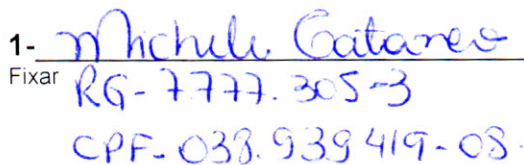 1- Micheli Cataneo
Fixar RG-7777.305-3
CPF-038.939419-08.